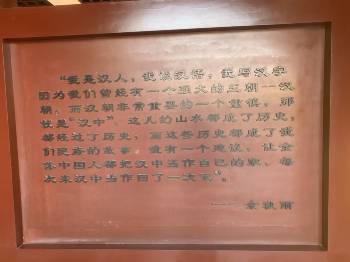 “我是汉人，我说汉语，我写汉字
因为我们曾经有一个强大的王朝一汉
朝，而汉朝非常重要的一个重镇，那
就是“汉中”，这儿的山水都成了历史，
都经过了历史，而这些历史都成了我
们民族的故事，我有一个建议，让全
体中国人都把汉中当作自己的家，每
次来汉中当作回了一次家”。
——余秋雨